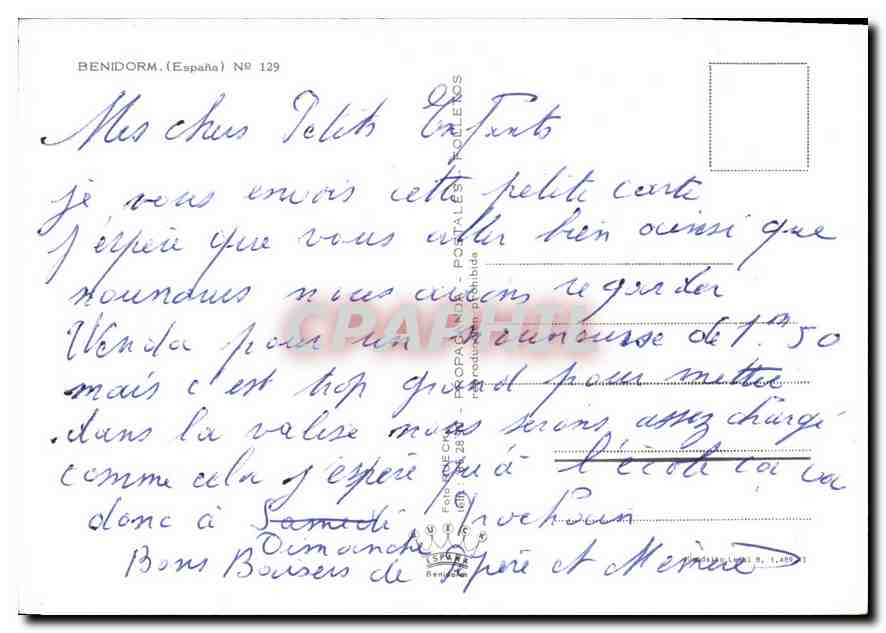 BENIDORM. (España) Nº 129
Mes chers Petits Enfants
je vous envois cette petite carte
j'espère que vous aller bien ainsi que
nounours nous avons regarder
Wenda pour un nounourse de 1.m 50
mais c'est trop grand pour mettre
dans la valise nous serons assez chargé
comme cela j'espère qu'à l'école ca va
donc à Samedi Prochain
Dimanche
Bons Baisers de Pépère et Mémère
PROPAGANDA - POSTALES - FOLLETOS
reproducción prohibida
Foto
CPAPHIL
ESPAÑA
Benidorm